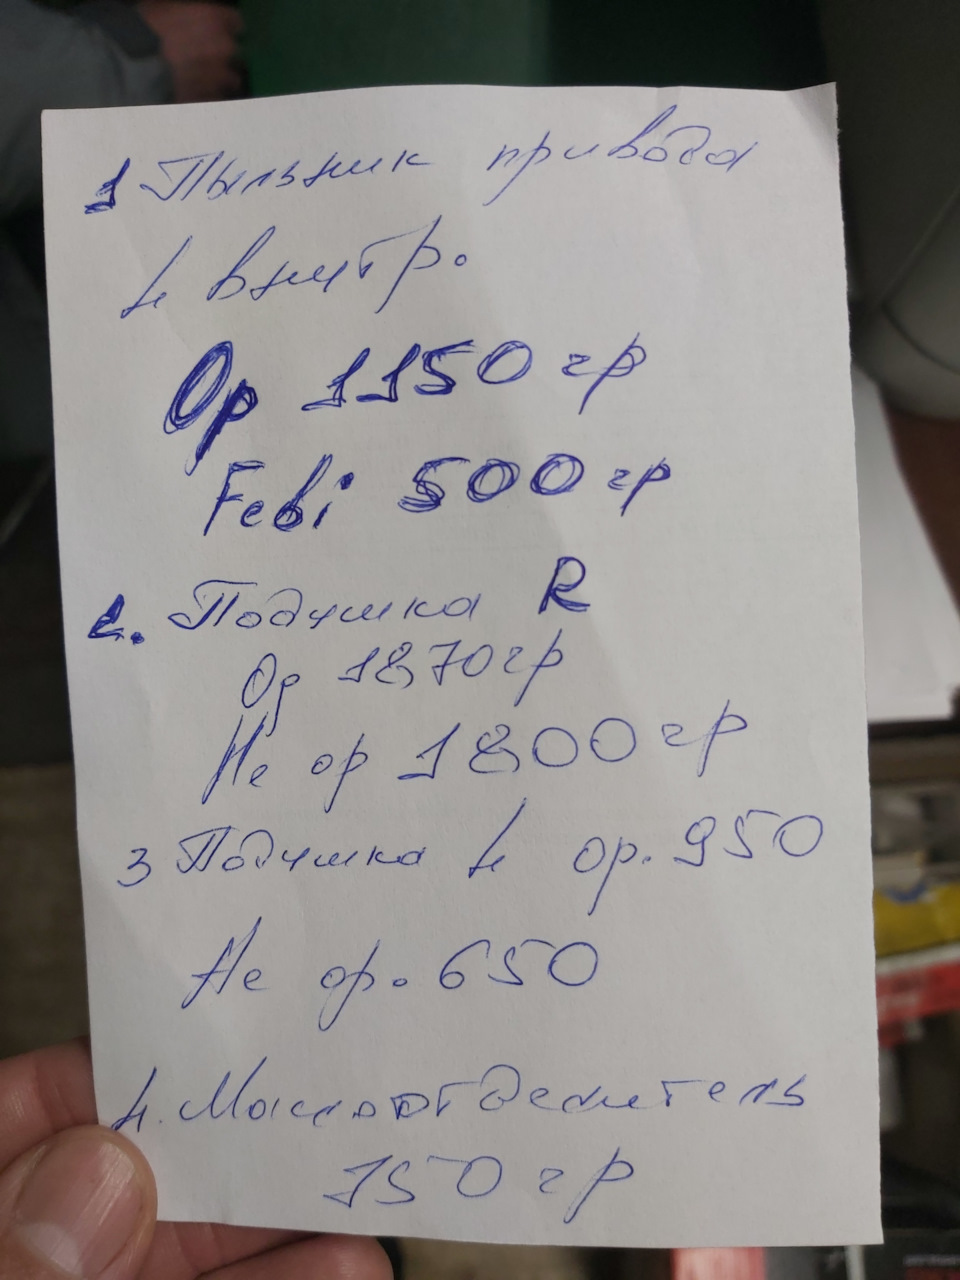 1 Пыльник привода
L внутр.
Ор 1150 гр
Febi 500 гр
2. Подушка R
Ор 1870 гр
Не ор 1800 гр
3 Подушка L ор. 950
Не ор. 650
4. Маслоотделитель
750 гр